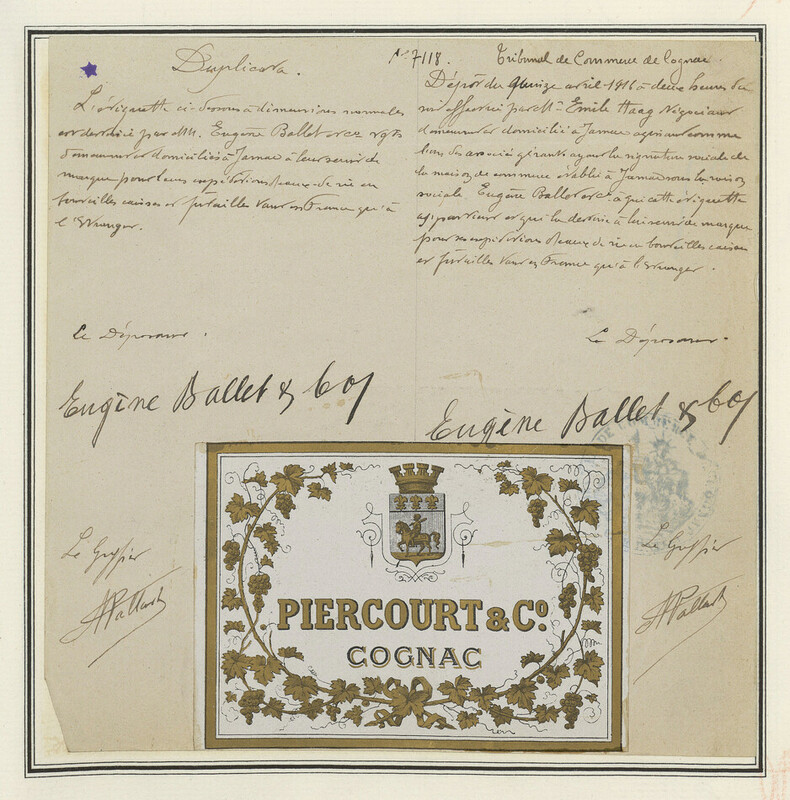 Duplicata.
L'étiquette ci-dessus à dimensions normales
est destinée par MM. Eugène Ballet et Cie Ngts
demeurant et domiciliés à Jarnac à leur servir de
marque pour leurs expéditions d'eaux-de-vie en
bouteilles caisses et futailles tant en France qu'à
l'Etranger.
Le Déposant.
Eugène Ballet & Co
Le Greffier
No 7118. Tribunal de Commerce de Cognac
Dépôt du quinze avril 1916 à deux heures du
soir effectué par M. Emile Haag Négociant
demeurant et domicilié à Jarnac agissant comme
l'un des associés gérants ayant la signature sociale de
la maison de commerce établie à Jarnac sous la raison
sociale Eugène Ballet et Cie à qui cette étiquette
appartient et qui la destine à lui servir de marque
pour ses expéditions d'eaux-de-vie en bouteilles caisses
et futailles tant en France qu'à l'Etranger.
Le Déposant.
Eugène Ballet & Co
Le Greffier
PIERCOURT & Co.
COGNAC